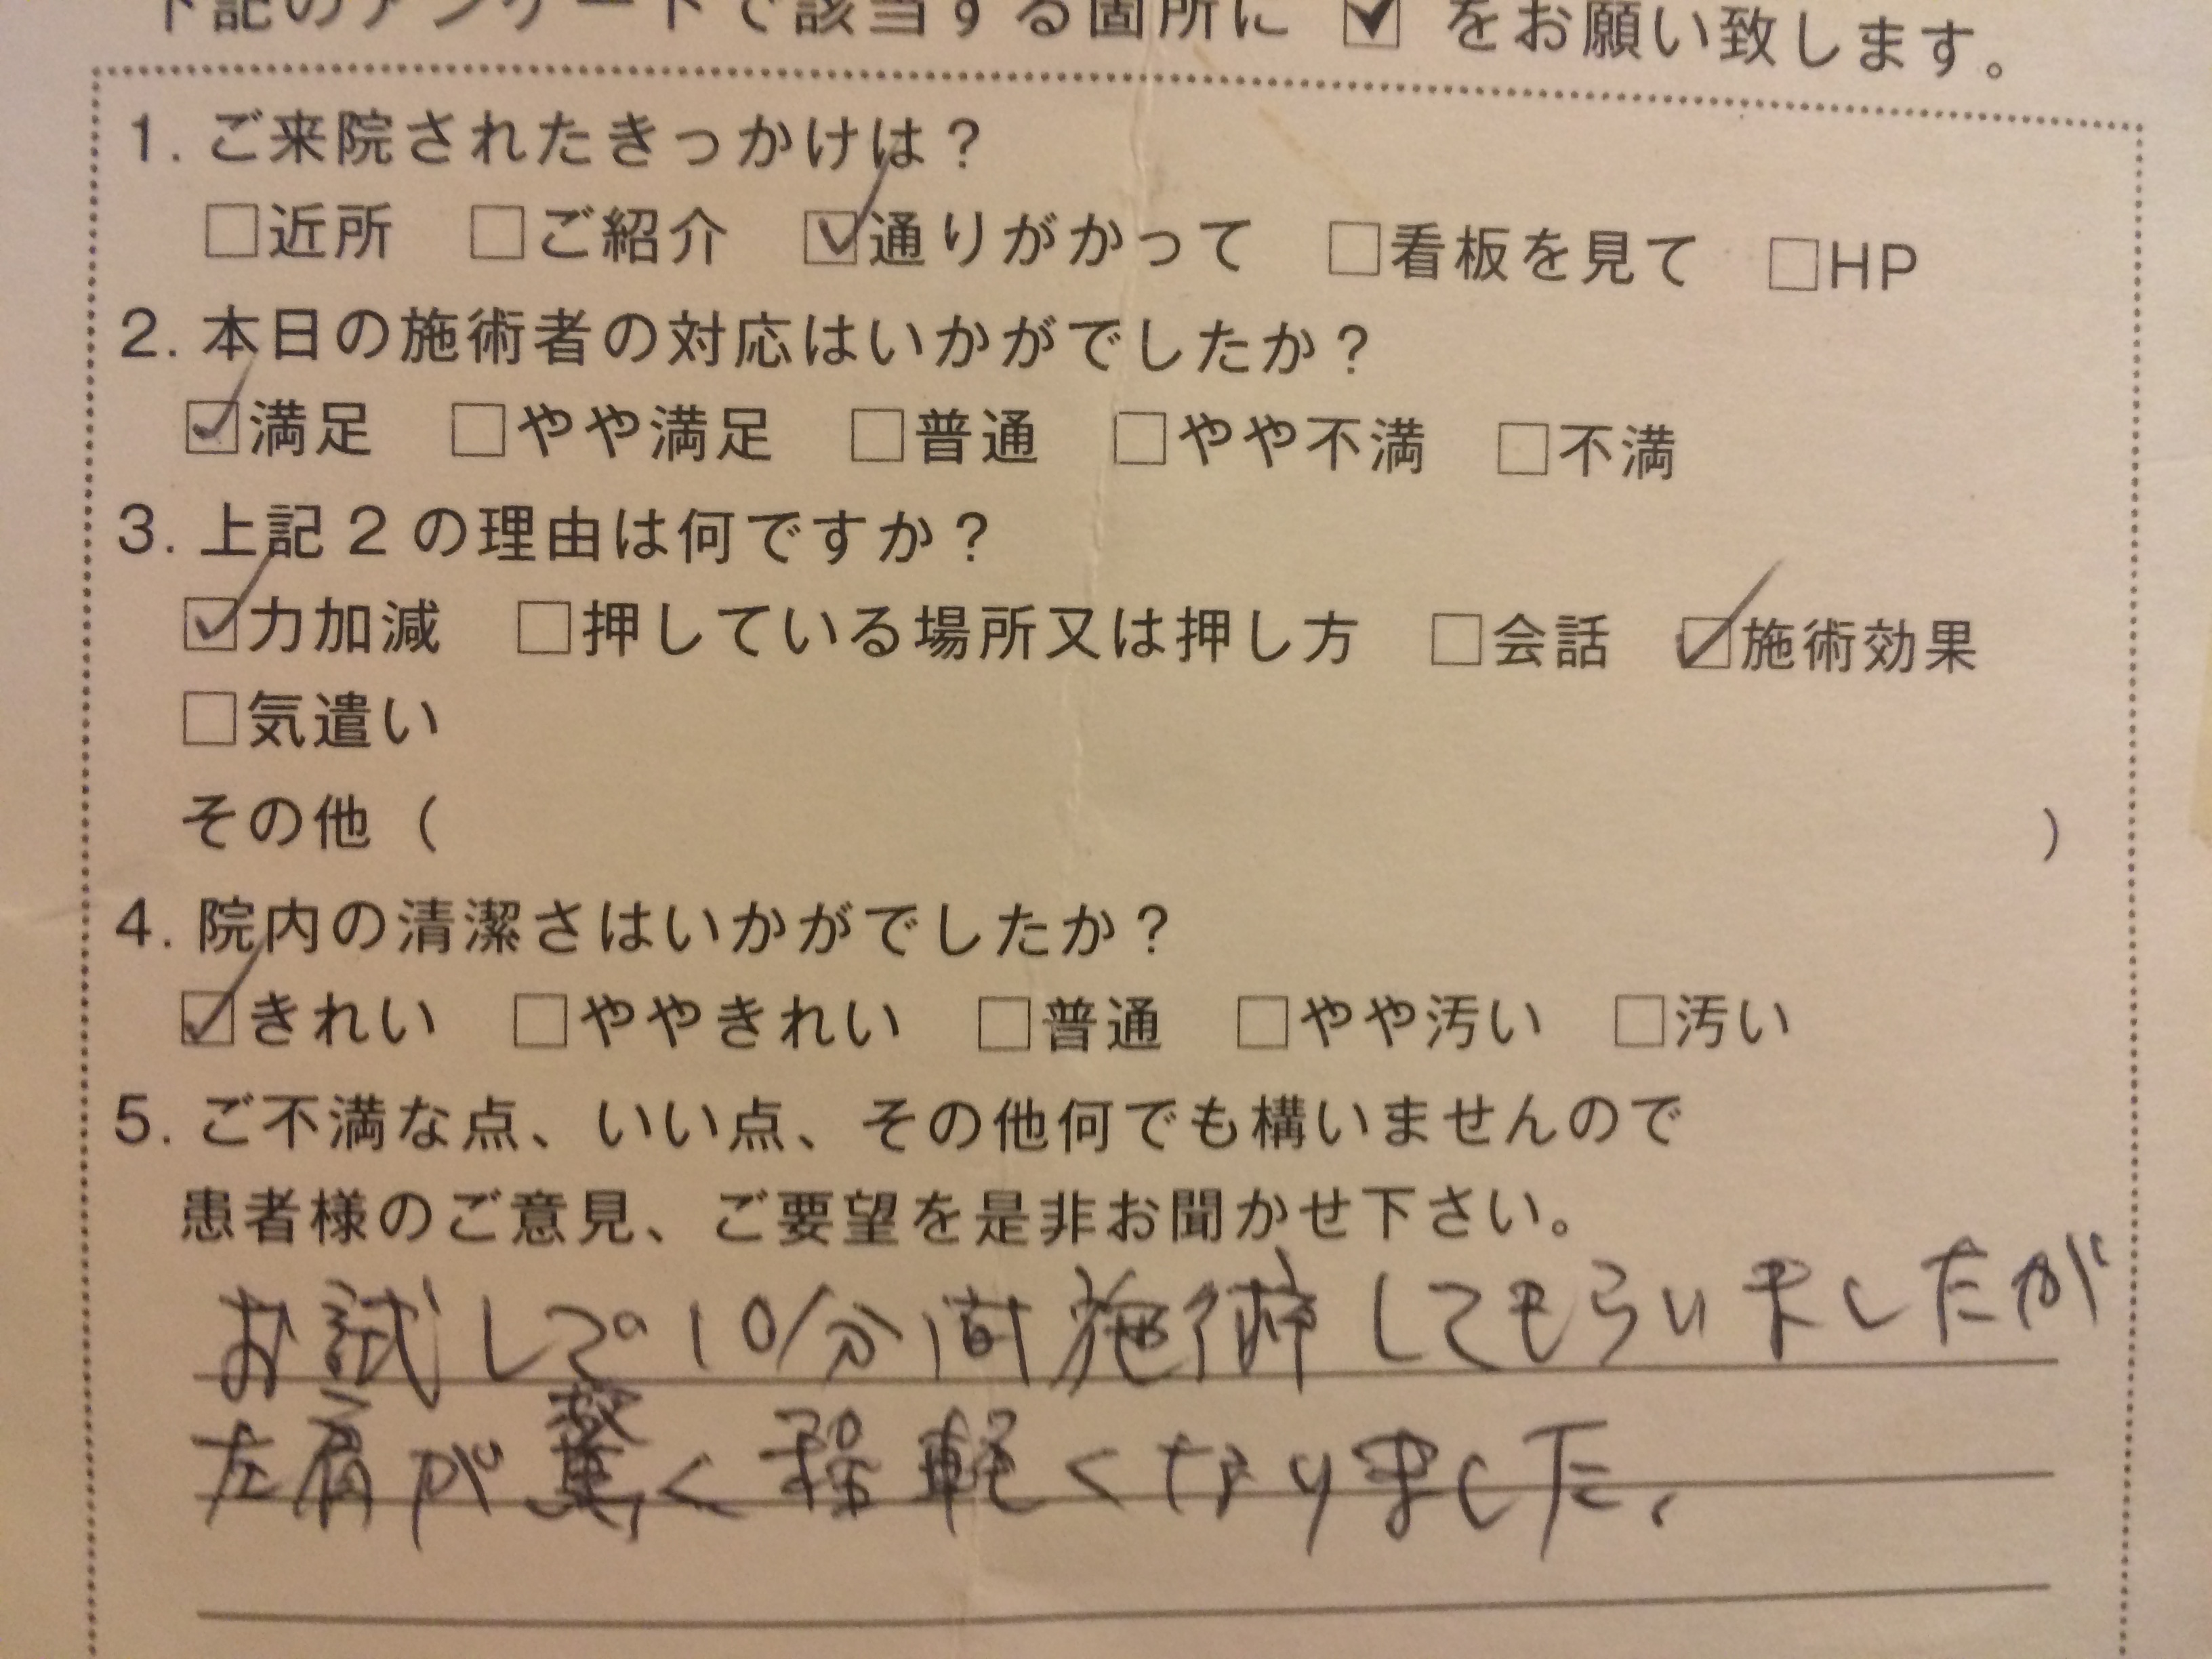 下記のアンケートで該当する箇所に ☑ をお願い致します。
1. ご来院されたきっかけは？
□近所 □ご紹介 ☑通りがかって □看板を見て □HP
2. 本日の施術者の対応はいかがでしたか？
☑満足 □やや満足 □普通 □やや不満 □不満
3. 上記2の理由は何ですか？
☑力加減 □押している場所又は押し方 □会話 ☑施術効果
□気遣い
その他（ ）
4. 院内の清潔さはいかがでしたか？
☑きれい □ややきれい □普通 □やや汚い □汚い
5. ご不満な点、いい点、その他何でも構いませんので
患者様のご意見、ご要望を是非お聞かせ下さい。
お試しで10分間施術してもらいましたが
左肩が驚く程軽くなりました、